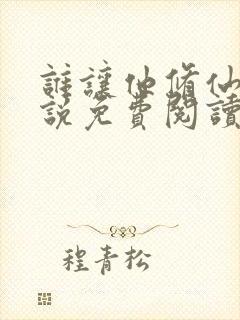 誰讓他修仙
說免費閱讀
程青松